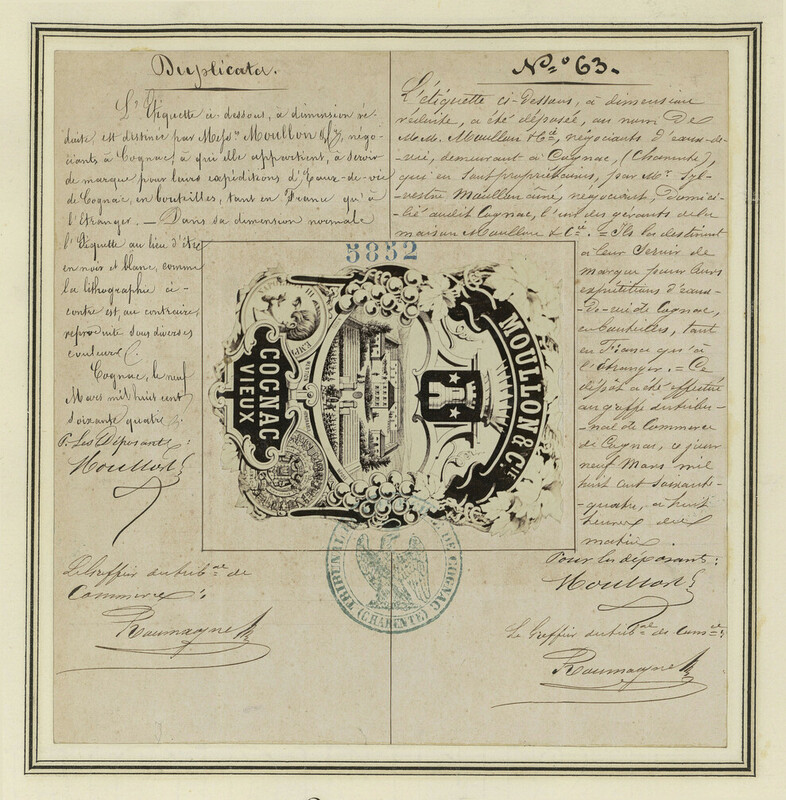 Duplicata.
L'Etiquette ci-dessous, à dimension ré-
duite, est destinée par Mess.rs Moullon & Cie, négo-
ciants à Cognac, à qui elle appartient, à servir
de marque pour leurs expéditions d'Eaux-de-vie
de Cognac, en bouteilles, tant en France qu'à
l'Etranger. — Dans sa dimension normale
l'Etiquette au lieu d'être
en noir et blanc, comme
la lithographie ci-
contre est au contraire,
reproduite sous diverses
couleurs.
Cognac, le neuf
Mars mil huit cent
soixante quatre.
P. Les Déposants:
Moullon
Le Greffier du trib.al de
Commerce:
Roumagne
N.o 63.
L'étiquette ci-Dessous, à dimension
réduite, a été déposée, au nom De
M.M. Moullon & Cie, négociants d'eaux-de-
-vie, demeurant à Cognac, (Charente),
qui en sont propriétaires, par Mr. Syl-
-vestre Moullon aîné, négociant, Domici-
-lié audit Cognac, l'un des gérants de la
maison Moullon & Cie. = Ils la destinent
à leur Servir de
marque pour leurs
expéditions d'eaux-
-De-vie de Cognac,
en bouteilles, tant
en France qu'à
l'étranger. = Ce
dépôt a été effectué
au greffe du tribu-
-nal de Commerce
de Cognac, ce jour
neuf Mars mil
huit cent soixante-
-quatre, à huit
heures du
matin.
Pour les déposants:
Moullon
Le Greffier du trib.al de Com.ce:
Roumagne
5852
NAPOLEON III
EMP
COGNAC
VIEUX
MOULLON & CIE
TRIBUNAL DE COGNAC
(CHARENTE)